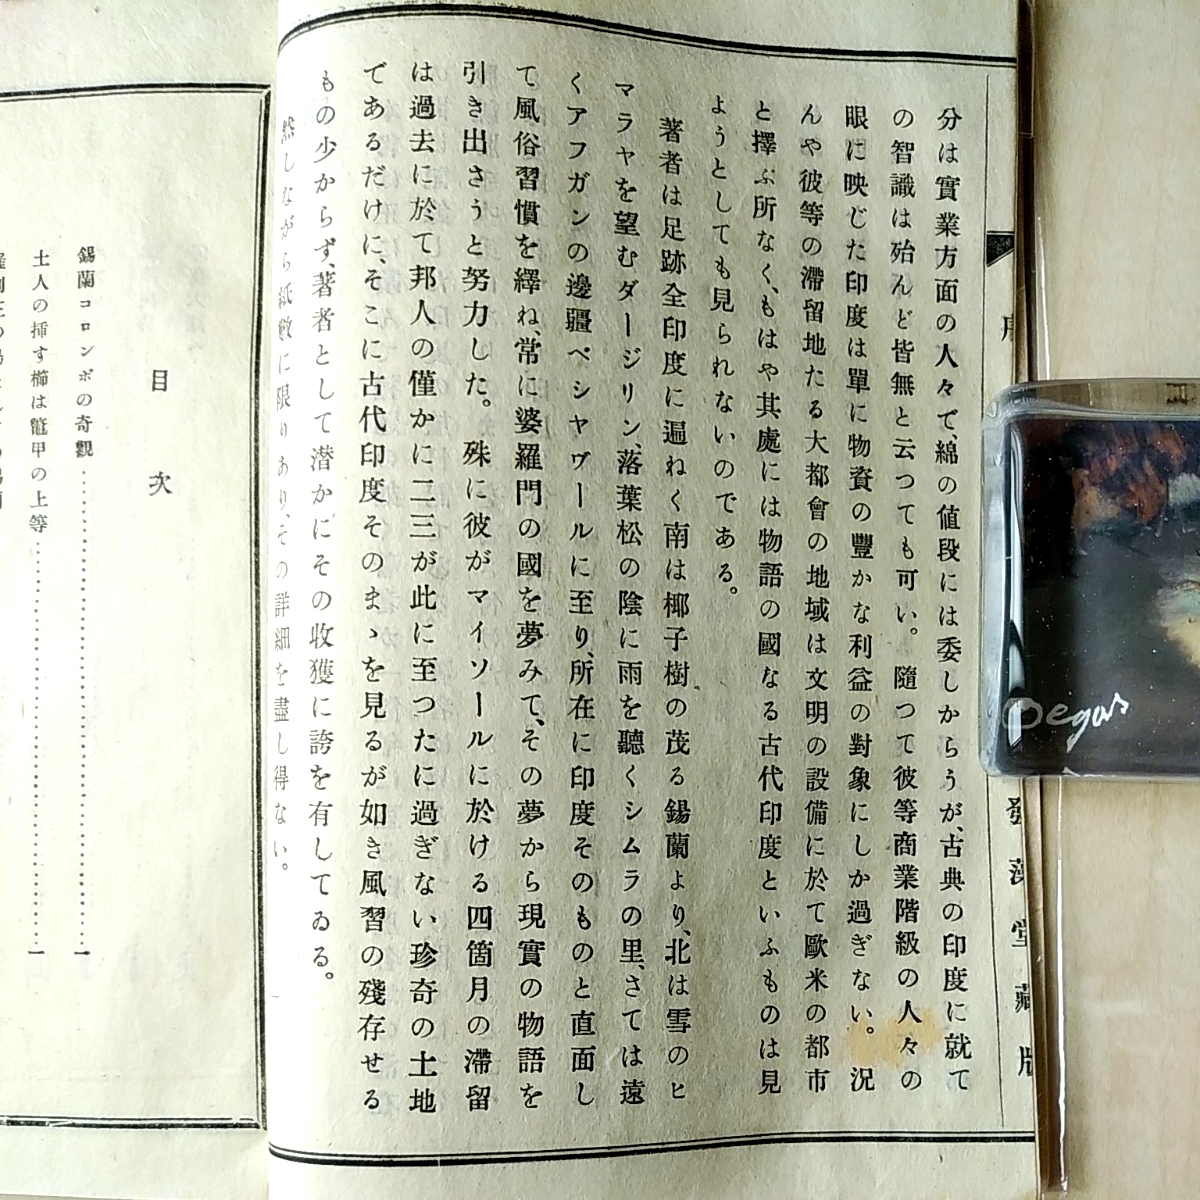 分は實業方面の人々で、綿の値段には委しからうが、古典の印度に就て
の智識は殆んど皆無と云つても可い。隨つて彼等商業階級の人々の
眼に映じた印度は單に物資の豐かな利益の對象にしか過ぎない。況
んや彼等の滯留地たる大都會の地域は文明の設備に於て歐米の都市
と擇ぶ所なく、もはや其處には物語の國なる古代印度といふものは見
ようとしても見られないのである。
著者は足跡全印度に遍ねく南は椰子樹の茂る錫蘭より、北は雪のヒ
マラヤを望むダージリン、落葉松の陰に雨を聽くシムラの里、さては遠
くアフガンの邊疆ペシヤヴールに至り、所在に印度そのものと直面し
て風俗習慣を繹ね、常に婆羅門の國を夢みて、その夢から現實の物語を
引き出さうと努力した。殊に彼がマイソールに於ける四箇月の滯留
は過去に於て邦人の僅かに二三が此に至つたに過ぎない珍奇の土地
であるだけに、そこに古代印度そのまゝを見るが如き風習の殘存せる
もの少からず、著者として潜かにその收獲に誇を有してゐる。
然しながら紙數に限りあり、その詳細を盡し得ない。
序
發藻堂藏版
目次
錫蘭コロンボの奇觀……一
土人の挿す櫛は鼈甲の上等……一
Degas